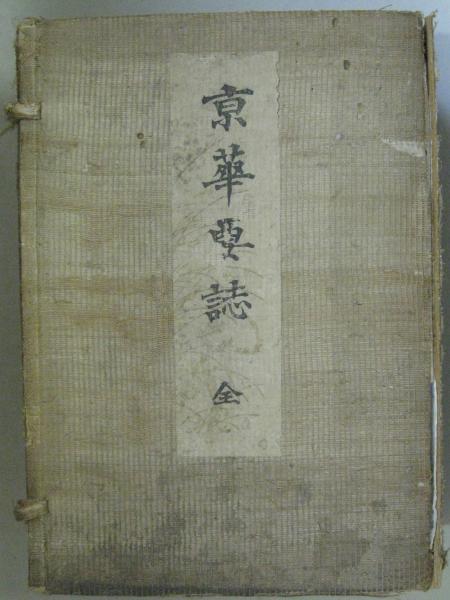 京華要誌 全